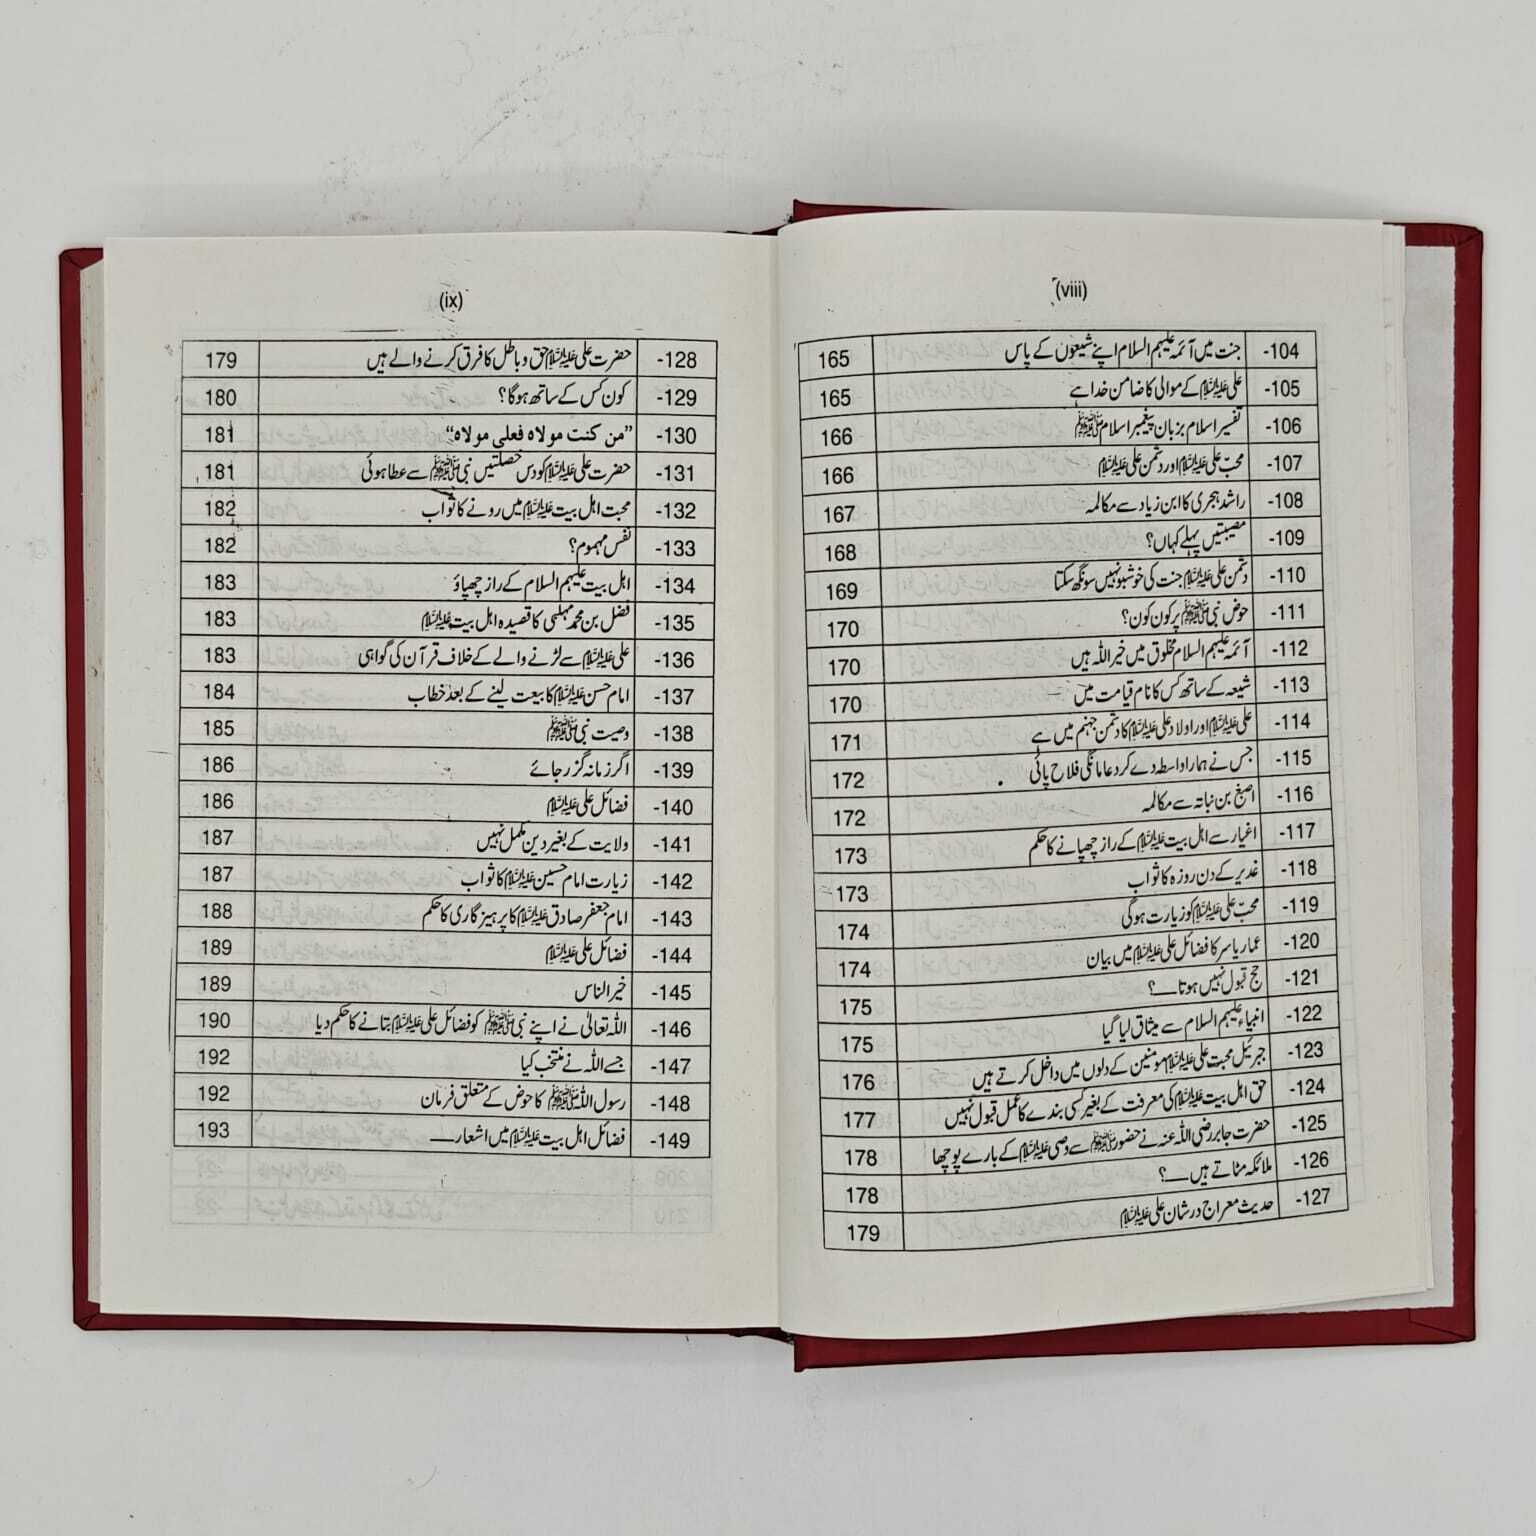 (viii)
104- جنت میں آئمہ علیہم السلام اپنے شیعوں کے پاس 165
105- علی علیہ السلام کے موالی کا ضامن خدا ہے 165
106- تفسیر اسلام بزبان پیغمبر اسلام ﷺ 166
107- محبّ علی علیہ السلام اور دشمن علی علیہ السلام 166
108- راشد ہجری کا ابن زیاد سے مکالمہ 167
109- مصیبتیں پہلے کہاں؟ 168
110- دشمن علی علیہ السلام جنت کی خوشبو نہیں سونگھ سکتا 169
111- حوض نبی ﷺ پر کون کون؟ 170
112- آئمہ علیہم السلام مخلوق میں خیر اللہ ہیں 170
113- شیعہ کے ساتھ کس کا نام قیامت میں 170
114- علی علیہ السلام اور اولاد علی علیہ السلام کا دشمن جہنم میں ہے 171
115- جس نے ہمارا واسطہ دے کر دعا مانگی فلاح پائی 172
116- اصبغ بن نباتہ سے مکالمہ 172
117- اغیار سے اہل بیت علیہ السلام کے راز چھپانے کا حکم 173
118- غدیر کے دن روزہ کا ثواب 173
119- محبّ علی علیہ السلام کو زیارت ہوگی 174
120- عمار یاسر کا فضائل علی علیہ السلام میں بیان 174
121- حج قبول نہیں ہوتا۔۔۔؟ 175
122- انبیاء علیہم السلام سے میثاق لیا گیا 175
123- جبرئیل محبت علی علیہ السلام مومنین کے دلوں میں داخل کرتے ہیں 176
124- حق اہل بیت علیہ السلام کی معرفت کے بغیر کسی بندے کا عمل قبول نہیں 177
125- حضرت جابر رضی اللہ عنہ نے حضور ﷺ سے وصی علیہ السلام کے بارے پوچھا 178
126- ملائکہ مٹاتے ہیں۔۔۔؟ 178
127- حدیث معراج در شان علی علیہ السلام 179
(ix)
128- حضرت علی علیہ السلام حق و باطل کا فرق کرنے والے ہیں 179
129- کون کس کے ساتھ ہوگا؟ 180
130- ”من کنت مولاہ فعلی مولاہ“ 181
131- حضرت علی علیہ السلام کو دس خصلتیں نبی ﷺ سے عطا ہوئی 181
132- محبت اہل بیت علیہ السلام میں رونے کا ثواب 182
133- نفس مہموم؟ 182
134- اہل بیت علیہم السلام کے راز چھپاؤ 183
135- فضل بن محمد مہلبی کا قصیدہ اہل بیت علیہ السلام 183
136- علی علیہ السلام سے لڑنے والے کے خلاف قرآن کی گواہی 183
137- امام حسن علیہ السلام کا بیعت لینے کے بعد خطاب 184
138- وصیت نبی ﷺ 185
139- اگر زمانہ گزر جائے 186
140- فضائل علی علیہ السلام 186
141- ولایت کے بغیر دین مکمل نہیں 187
142- زیارت امام حسین علیہ السلام کا ثواب 187
143- امام جعفر صادق علیہ السلام کا پرہیزگاری کا حکم 188
144- فضائل علی علیہ السلام 189
145- خیر الناس 189
146- اللہ تعالیٰ نے اپنے نبی ﷺ کو فضائل علی علیہ السلام بتانے کا حکم دیا 190
147- جسے اللہ نے منتخب کیا 192
148- رسول اللہ ﷺ کا حوض کے متعلق فرمان 192
149- فضائل اہل بیت علیہ السلام میں اشعار۔۔۔ 193